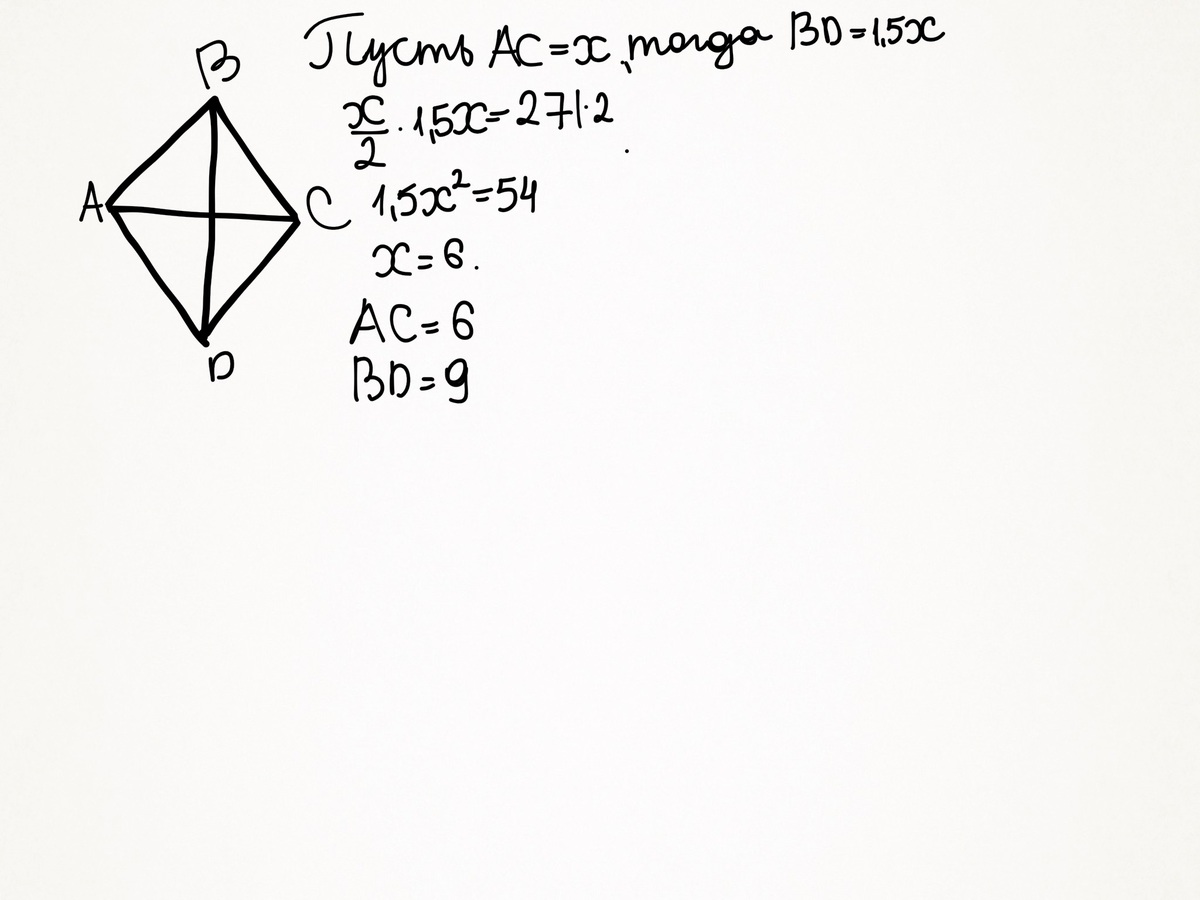 B
Пусть AC=x, тогда BD=1,5x
x/2 · 1,5x=27|·2
A
C
1,5x²=54
x=6.
AC=6
D
BD=9